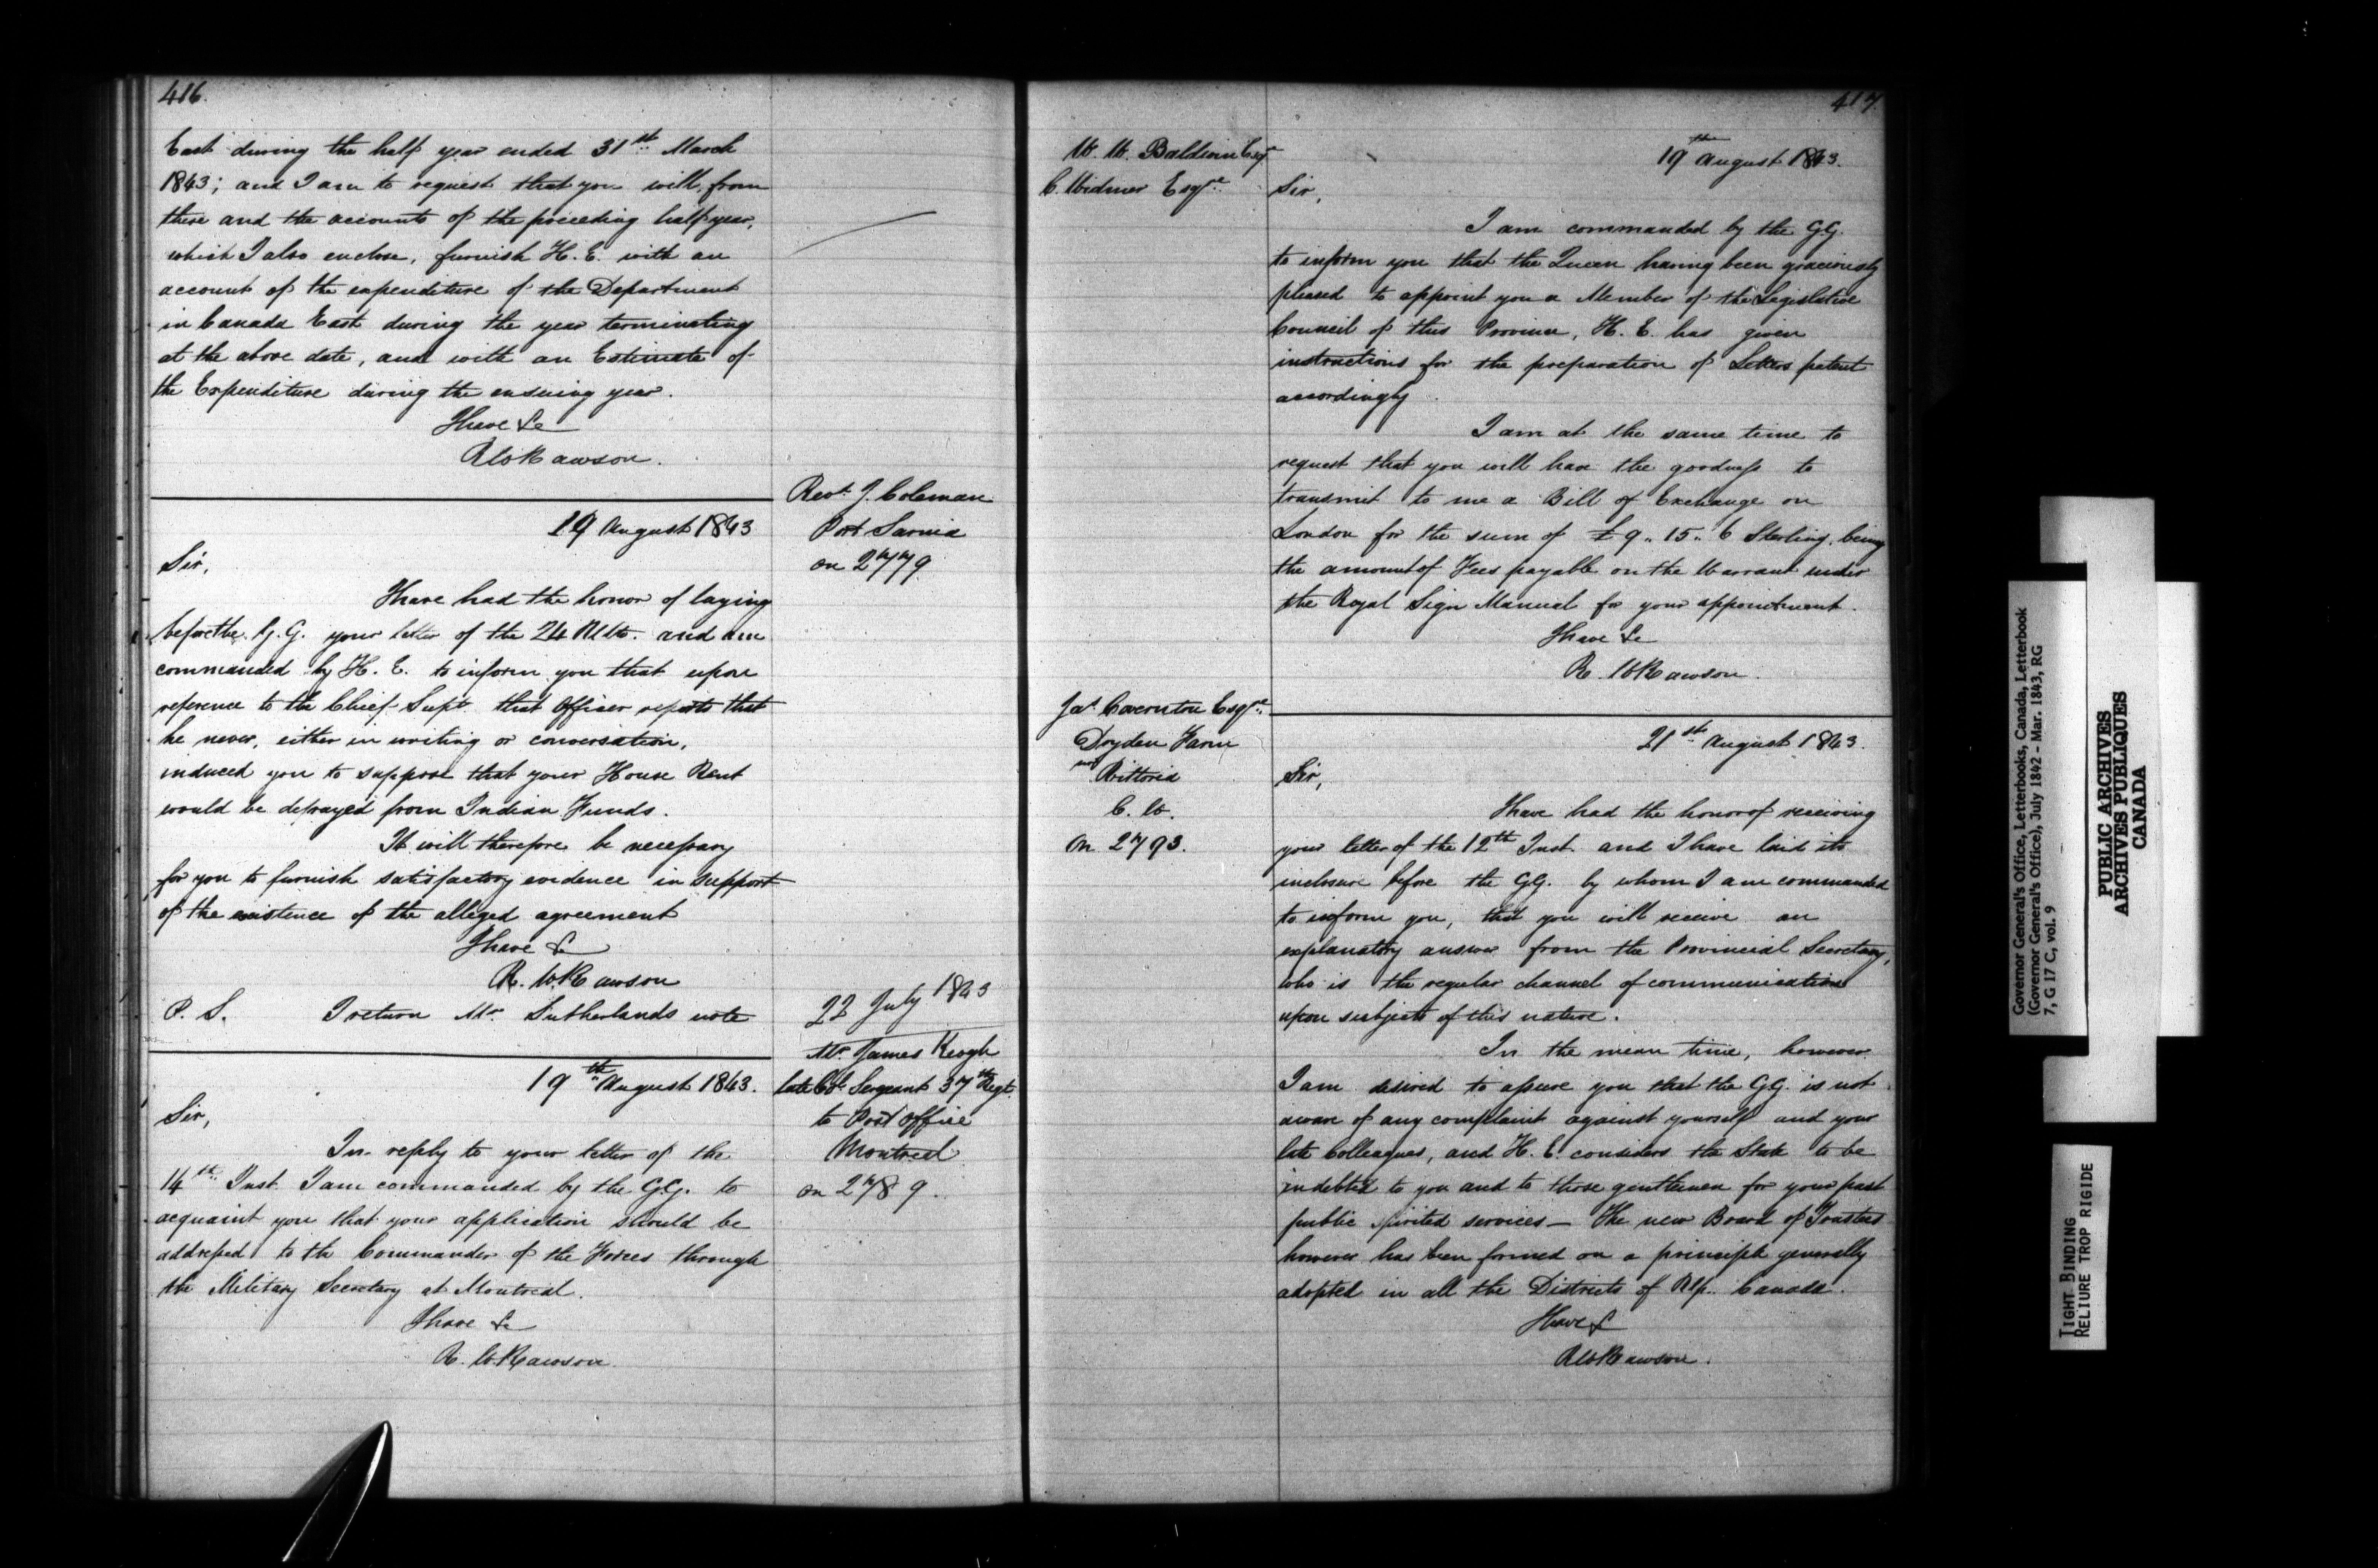 416.
East during the half year ended 31st March
1843; and I am to request that you will, from
these and the accounts of the preceding half year,
which I also enclose, furnish H. E. with an
account of the expenditure of the Department
in Canada East during the year terminating
at the above date, and with an Estimate of
the Expenditure during the ensuing year.
I have &c
R W Rawson.
Revd. J. Coleman
Port Sarnia
on 2779
19 August 1843
Sir,
I have had the honor of laying
before the G. G. your letter of the 24 Ulto. and am
commanded by H. E. to inform you that upon
reference to the Chief Supt. that Officer reports that
he never, either in writing or conversation,
induced you to suppose that your House Rent
would be defrayed from Indian Funds.
It will therefore be necessary
for you to furnish satisfactory evidence in support
of the existence of the alleged agreement
I have &c
R. W. Rawson
P. S. I return Mr. Sutherlands note
22 July 1843
Mr. James Keogh
late Col. Sergeant 37th Regt.
to Post Office
Montreal
on 2789.
19th August 1843.
Sir,
In reply to your letter of the
14th Inst. I am commanded by the G.G. to
acquaint you that your application should be
addressed to the Commander of the Forces through
the Military Secretary at Montreal.
I have &c
R. W. Rawson.
417.
W. W. Baldwin Esqr
C. Widmer Esqre
19th August 1843.
Sir,
I am commanded by the G.G.
to inform you that the Queen having been graciously
pleased to appoint you a Member of the Legislative
Council of this Province, H. E. has given
instructions for the preparation of Letters patent
accordingly.
I am at the same time to
request that you will have the goodness to
transmit to me a Bill of Exchange on
London for the sum of £9.. 15.. 6 Sterling, being
the amount of Fees payable on the Warrant under
the Royal Sign Manual for your appointment.
I have &c
R. W Rawson.
Jas. Covernton Esqre.
Dryden Farm
near Vittoria
C. W.
on 2793.
21st August 1843.
Sir,
I have had the honor of receiving
your letter of the 12th Inst. and I have laid its
inclosure before the G.G. by whom I am commanded
to inform you, that you will receive an
explanatory answer from the Provincial Secretary,
who is the regular channel of communication
upon subjects of this nature.
In the mean time, however
I am desired to assure you that the G.G. is not
aware of any complaint against yourself and your
late Colleagues, and H. E. considers the State to be
indebted to you and to those gentlemen for your past
public spirited services — the new Board of Trustees
however has been formed on a principle generally
adopted in all the Districts of Up. Canada.
I have &
R W Rawson.
Governor General's Office, Letterbooks, Canada, Letterbook
(Governor General's Office), July 1842 - Mar. 1843, RG
7, G 17 C, vol. 9
PUBLIC ARCHIVES
ARCHIVES PUBLIQUES
CANADA
TIGHT BINDING
RELIURE TROP RIGIDE